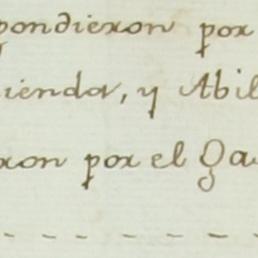 pondieron por
ienda, y Abil
ron por el Ga